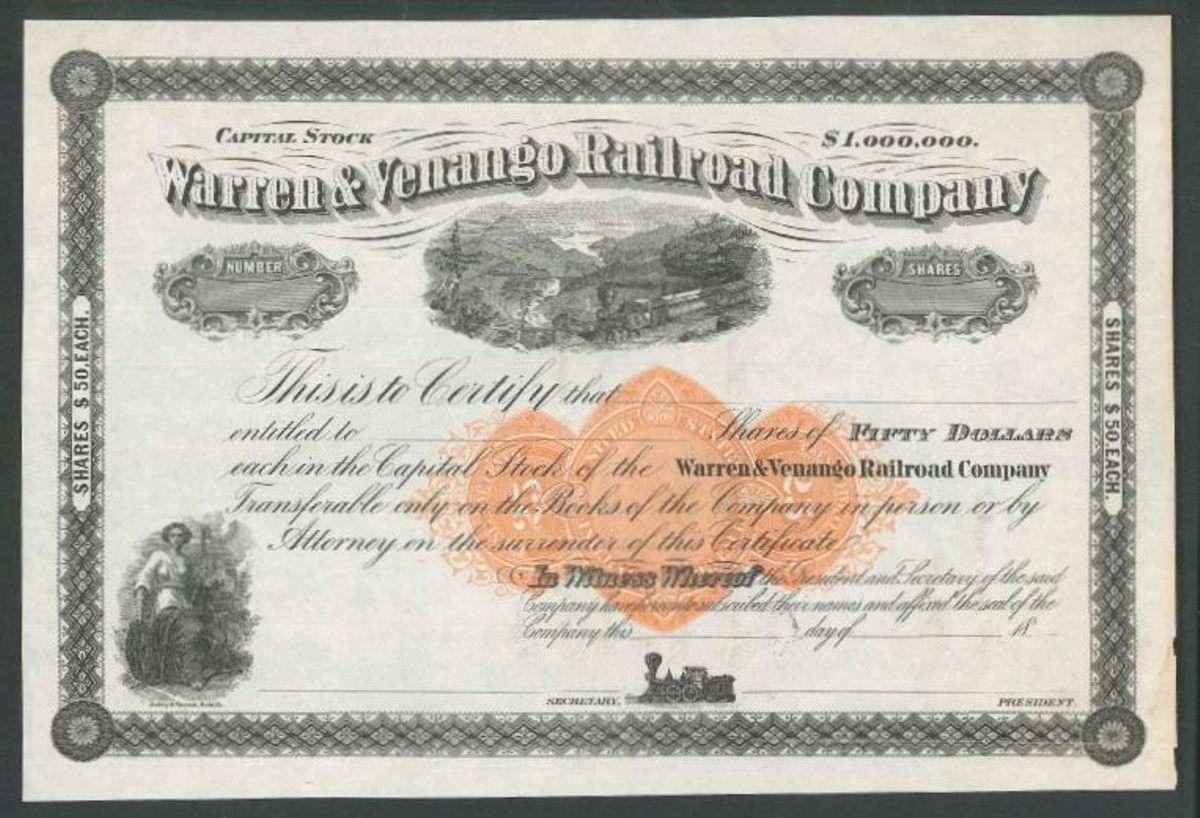 CAPITAL STOCK $1,000,000.
Warren & Venango Railroad Company
NUMBER
SHARES
SHARES $50. EACH.
SHARES $50. EACH.
This is to Certify that
entitled to Shares of FIFTY DOLLARS
each in the Capital Stock of the Warren & Venango Railroad Company
Transferable only on the Books of the Company in person or by
Attorney on the surrender of this Certificate.
In Witness Whereof the President and Secretary of the said
Company have hereunto subscribed their names and affixed the seal of the
Company this day of 18
SECRETARY. PRESIDENT
UNITED STATES
25